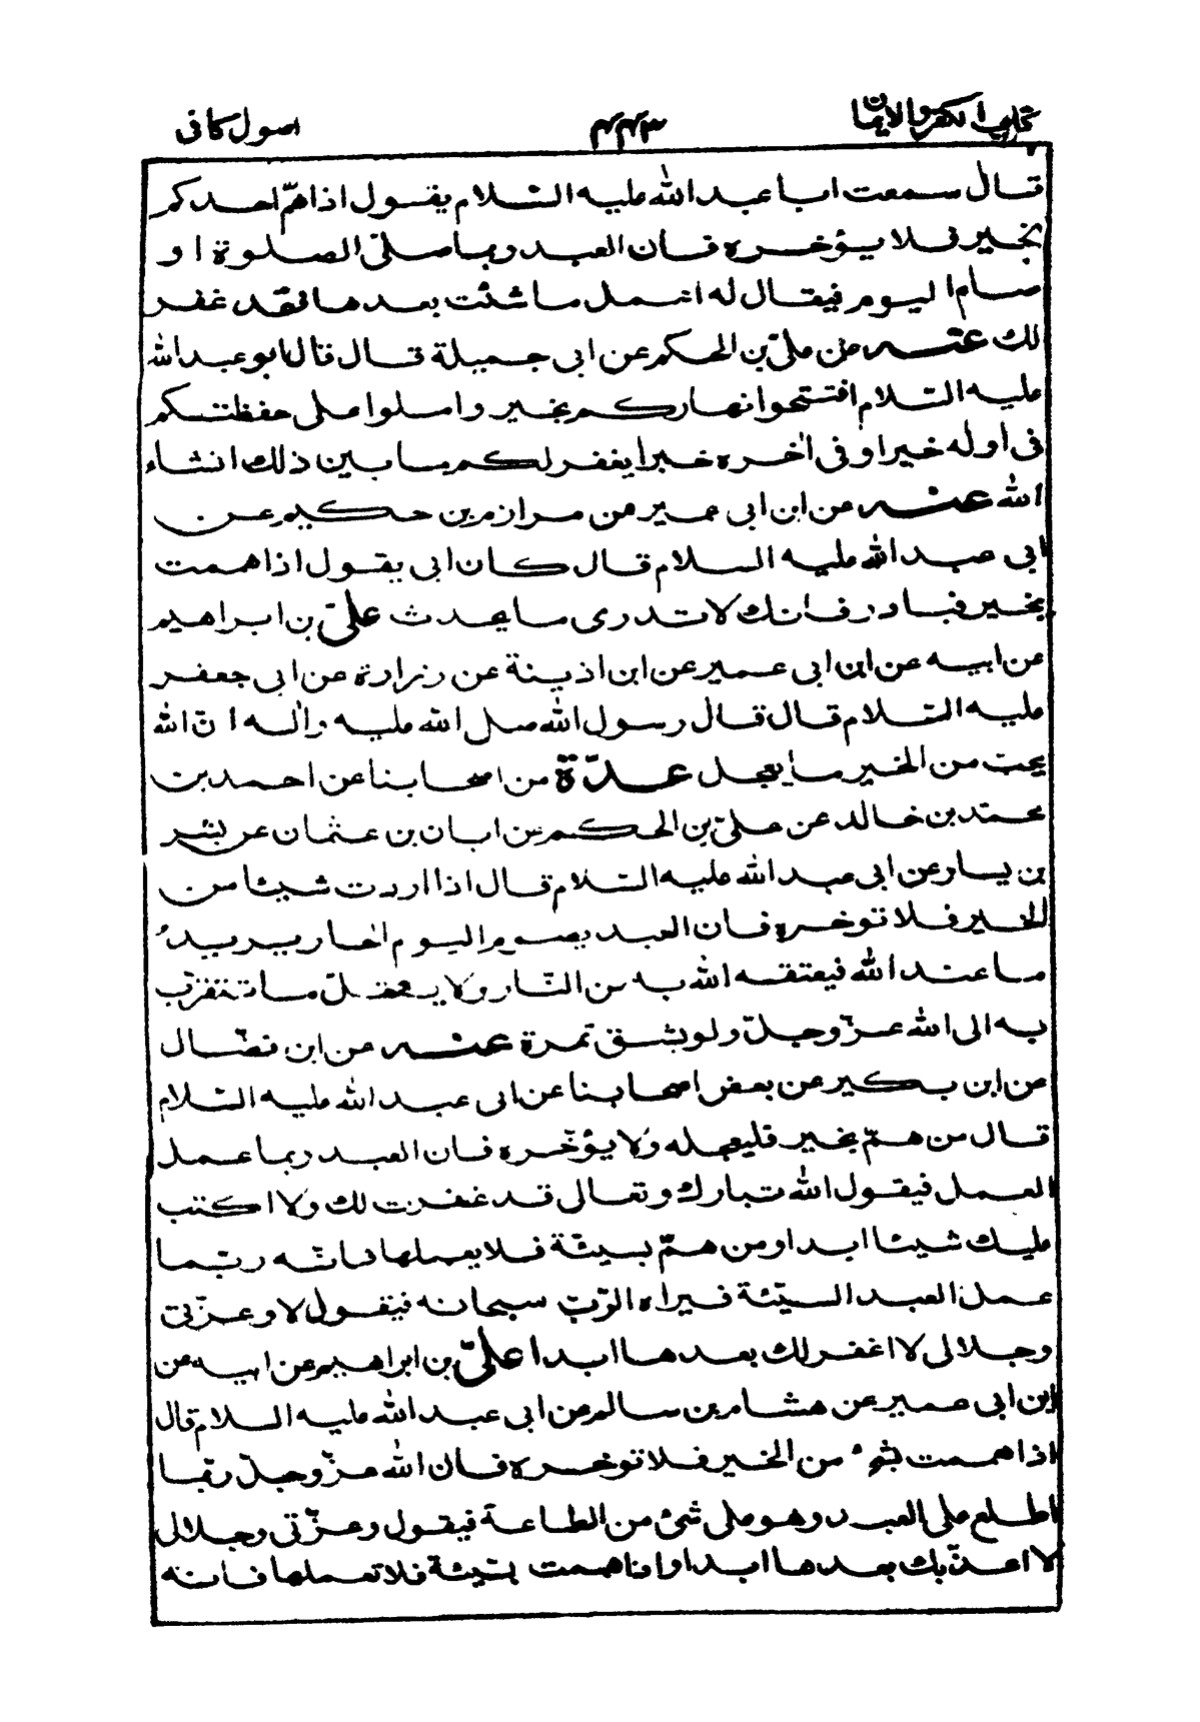 كتاب الكفر والايمان ۴۴۳ اصول كافى
قال سمعت ابا عبد الله عليه السّلام يقول اذا همّ احدكم
بخير فلا يؤخره فان العبد ربما صلى الصلوة او
صام اليوم فيقال له اعمل ما شئت بعدها فقد غفر
لك عنه عن علىّ بن الحكم عن ابى جميلة قال قال ابو عبد الله
عليه السّلام افتتحوا نهاركم بخير واملوا على حفظتكم
فى اوله خيرا وفى اٰخره خيرا يغفر لكم ما بين ذلك انشاء
الله عنه عن ابن ابى عمير عن مرازم بن حكيم عن
ابى عبد الله عليه السلام قال كان ابى يقول اذا هممت
بخير فبادر فانك لا تدرى ما يحدث علىّ بن ابراهيم
عن ابيه عن ابن ابى عمير عن ابن اذينة عن زرارة عن ابى جعفر
عليه السّلام قال قال رسول الله صلى الله عليه واٰله انّ الله
يحبّ من الخير ما يعجل عدّة من اصحابنا عن احمد بن
محمّد بن خالد عن علىّ بن الحكم عن ابان بن عثمان عن بشر
بن يسار عن ابى عبد الله عليه السّلام قال اذا اردت شيئا من
الخير فلا توخره فان العبد يصوم اليوم الحار يريد
ما عند الله فيعتقه الله به من النّار ولا يستقلّ ما تتقرّب
به الى الله عزّ وجلّ ولو بشق تمرة عنه عن ابن فضّال
عن ابن بكير عن بعض اصحابنا عن ابى عبد الله عليه السّلام
قال من همّ بخير فليعجله ولا يؤخّره فان العبد ربما عمل
العمل فيقول الله تبارك وتعالى قد غفرت لك ولا اكتب
عليك شيئا ابدا ومن همّ بسيّئة فلا يعملها فانّه ربّما
عمل العبد السيّئة فيراه الرّبّ سبحانه فيقول لا وعزّتى
وجلالى لا اغفر لك بعدها ابدا علىّ بن ابراهيم عن ابيه عن
ابن ابى عمير عن هشام بن سالم عن ابى عبد الله عليه السلام قال
اذا هممت بشىء من الخير فلا توخره فان الله عزّ وجلّ ربّما
اطلع على العبد وهو على شئ من الطاعة فيقول وعزّتى وجلالى
لا اعذّبك بعدها ابدا واذا هممت بسيّئة فلا تعملها فانه